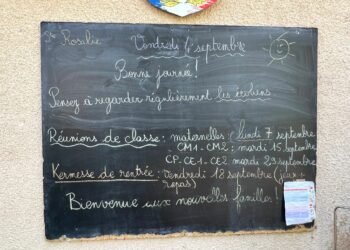 Ste Rosalie
Vendredi 4 septembre
Bonne journée !
Pensez à regarder régulièrement les écrans
Réunions de classe : maternelles : lundi 7 septembre
CM1 - CM2 : mardi 15 septembre
CP - CE1 - CE2 mardi 29 septembre
Kermesse de rentrée : vendredi 18 septembre (jeux,
repas)
Bienvenue aux nouvelles familles !